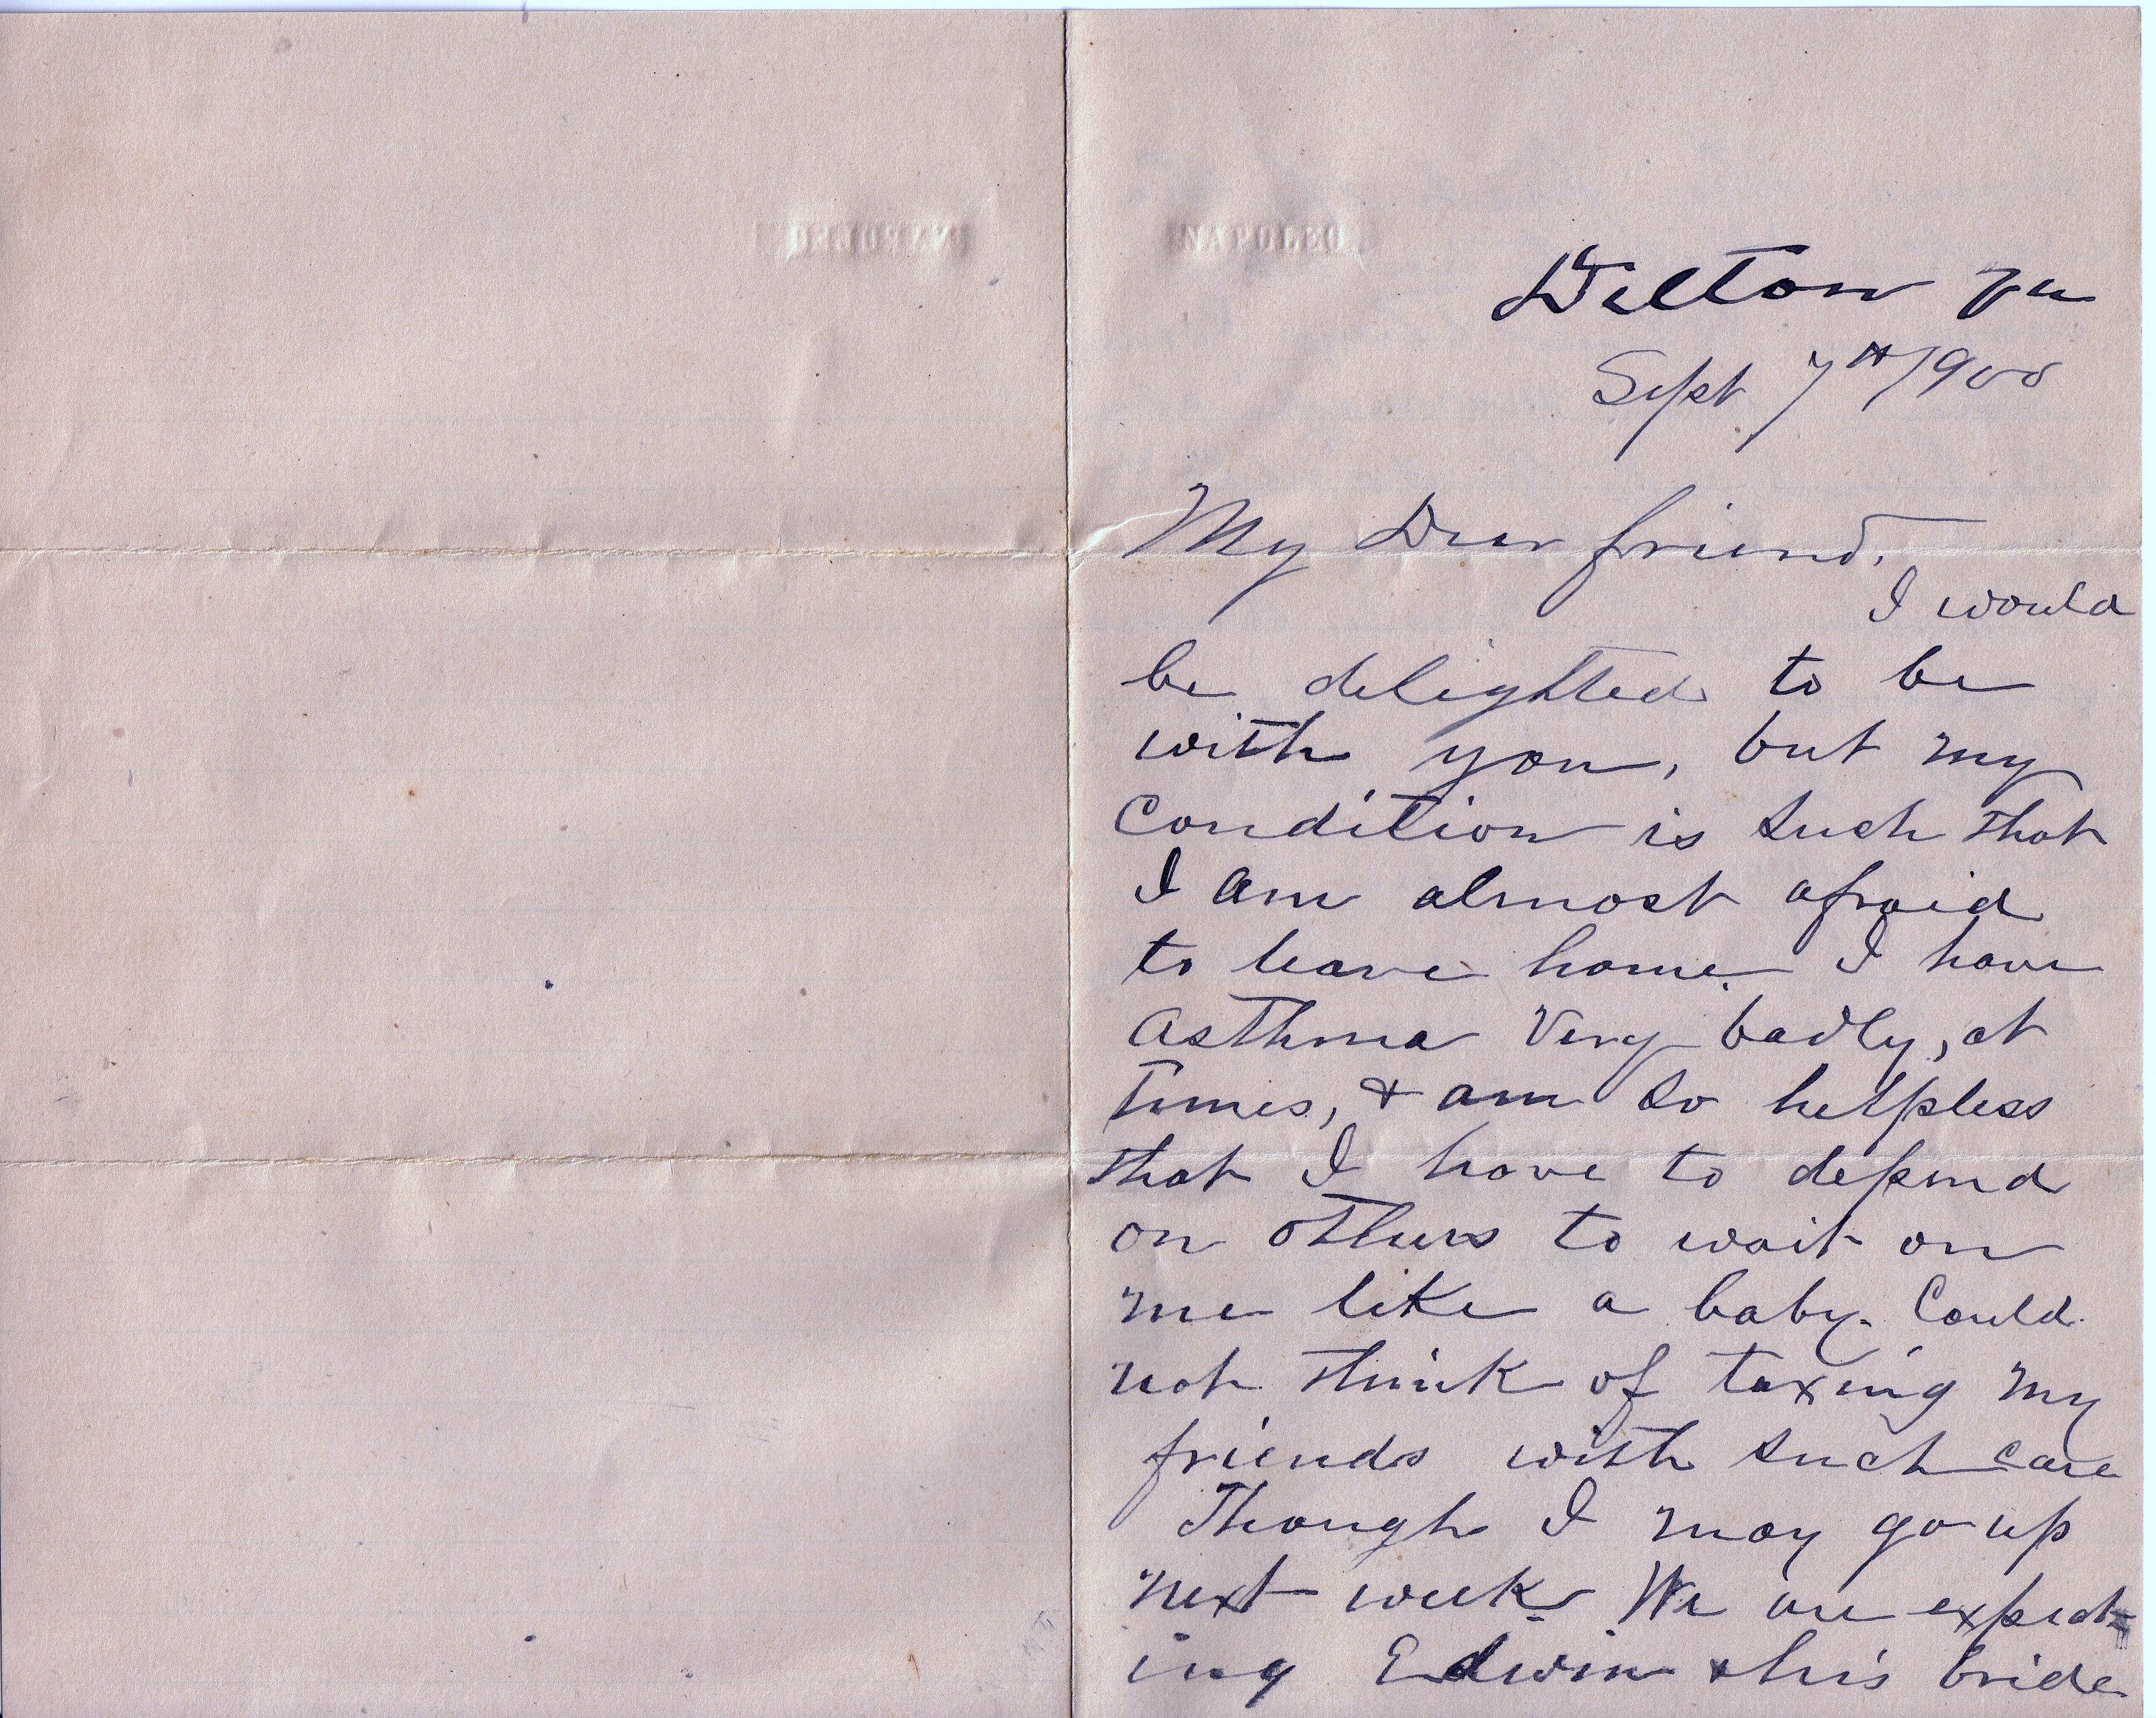 Delton Va
Sept 7th 1900
My Dear friend.
I would
be delighted to be
with you, but my
Condition is such that
I am almost afraid
to leave home. I have
asthma very badly, at
times, & am so helpless
that I have to depend
on others to wait on
me like a baby. Could
not think of taxing my
friends with such care
Though I may go up
next week. We are expect-
ing Edwin & his bride